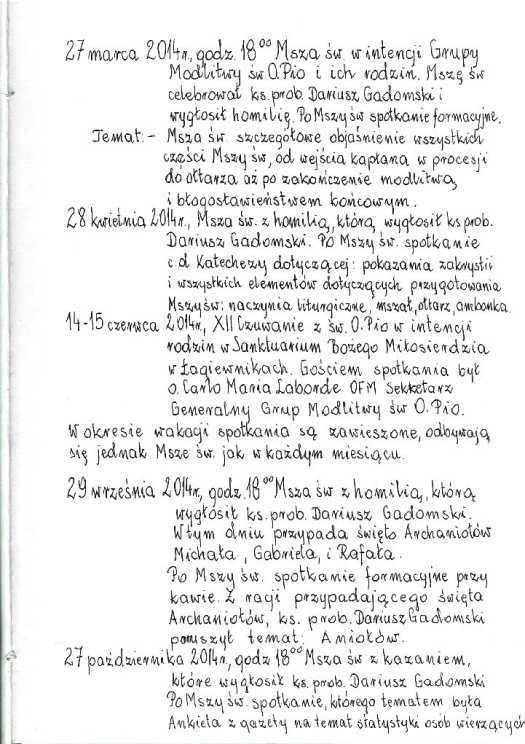 27 marca 2014r., godz. 18⁰⁰ Msza św. w intencji Grupy
Modlitwy św O. Pio i ich rodzin. Mszę św
celebrował ks. prob. Dariusz Gadomski i
wygłosił homilię. Po Mszy św spotkanie formacyjne.
Temat: - Msza św. szczegółowe objaśnienie wszystkich
części Mszy św, od wejścia kapłana w procesji
do ołtarza aż po zakończenie modlitwą
i błogosławieństwem końcowym.
28 kwietnia 2014r., Msza św. z homilią, którą wygłosił ks prob.
Dariusz Gadomski. Po Mszy św. spotkanie
c.d Katechezy dotyczącej: pokazania zakrystii
i wszystkich elementów dotyczących przygotowania
Mszy św: naczynia liturgiczne, mszał, ołtarz, ambonka.
14-15 czerwca 2014r., XII Czuwanie z św. O. Pio w intencji
rodzin w Sanktuarium Bożego Miłosierdzia
w Łagiewnikach. Gościem spotkania był
o. Carlo Maria Laborde OFM Sekretarz
Generalny Grup Modlitwy św O. Pio.
W okresie wakacji spotkania są zawieszone, odbywają
się jednak Msze św. jak w każdym miesiącu.
29 września 2014r., godz. 18⁰⁰ Msza św z homilią, którą
wygłosił ks. prob. Dariusz Gadomski.
W tym dniu przypada święto Archaniołów
Michała, Gabriela, i Rafała.
Po Mszy św. spotkanie formacyjne przy
kawie. Z racji przypadającego święta
Archaniołów, ks. prob. Dariusz Gadomski
poruszył temat: Aniołów.
27 października 2014r., godz 18⁰⁰ Msza św z kazaniem,
które wygłosił ks. prob. Dariusz Gadomski
Po Mszy św. spotkanie, którego tematem była
Ankieta z gazety na temat statystyki osób wierzących